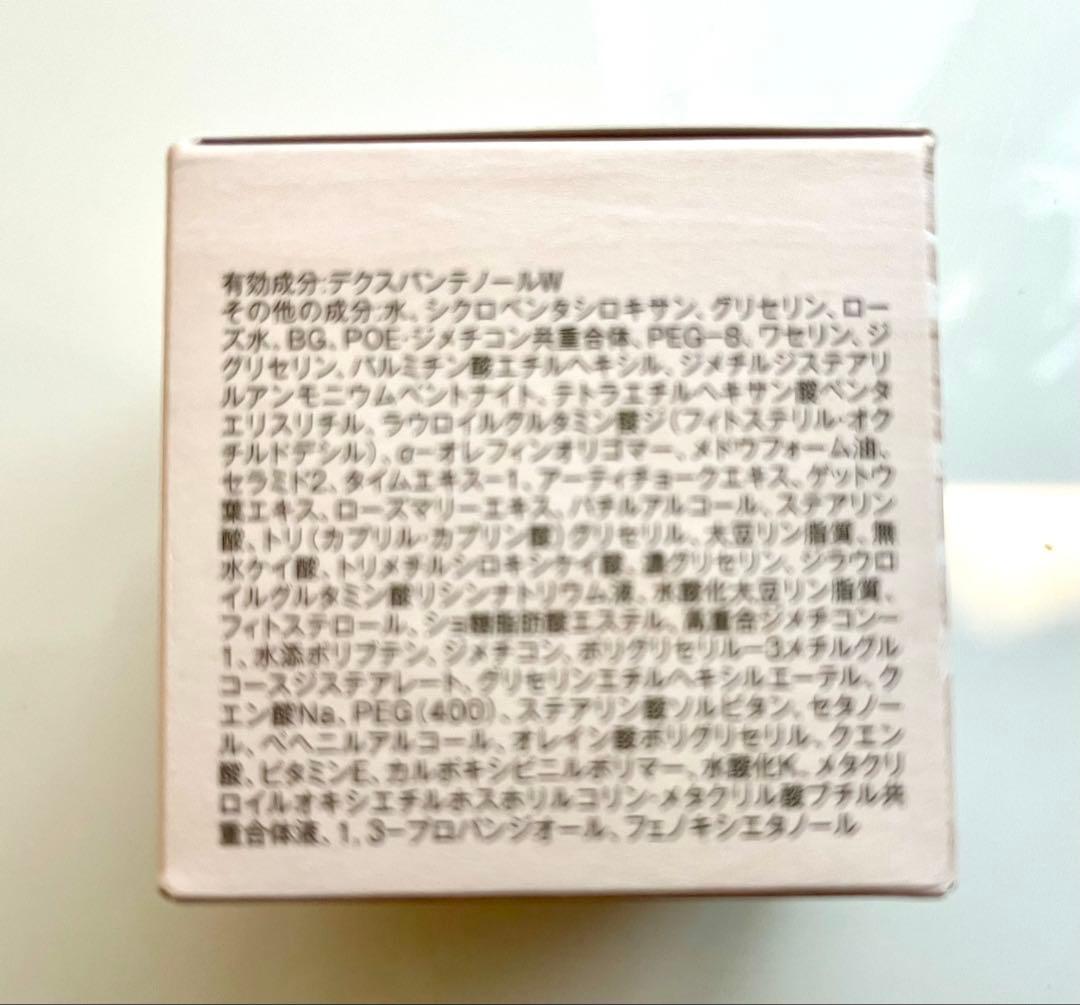 有効成分:デクスパンテノールW
その他の成分:水、シクロペンタシロキサン、グリセリン、ロー
ズ水、BG、POE・ジメチコン共重合体、PEG−8、ワセリン、ジ
グリセリン、パルミチン酸エチルヘキシル、ジメチルジステアリ
ルアンモニウムベントナイト、テトラエチルヘキサン酸ペンタ
エリスリチル、ラウロイルグルタミン酸ジ(フィトステリル・オク
チルドデシル)、α−オレフィンオリゴマー、メドウフォーム油、
セラミド2、タイムエキス−1、アーティチョークエキス、ゲットウ
葉エキス、ローズマリーエキス、バチルアルコール、ステアリン
酸、トリ(カプリル・カプリン酸)グリセリル、大豆リン脂質、無
水ケイ酸、トリメチルシロキシケイ酸、濃グリセリン、ジラウロ
イルグルタミン酸リシンナトリウム液、水酸化大豆リン脂質、
フィトステロール、ショ糖脂肪酸エステル、高重合ジメチコン−
1、水添ポリブテン、ジメチコン、ポリグリセリル−3メチルグル
コースジステアレート、グリセリンエチルヘキシルエーテル、ク
エン酸Na、PEG(400)、ステアリン酸ソルビタン、セタノー
ル、ベヘニルアルコール、オレイン酸ポリグリセリル、クエン
酸、ビタミンE、カルボキシビニルポリマー、水酸化K、メタクリ
ロイルオキシエチルホスホリルコリン・メタクリル酸ブチル共
重合体液、1，3−プロパンジオール、フェノキシエタノール